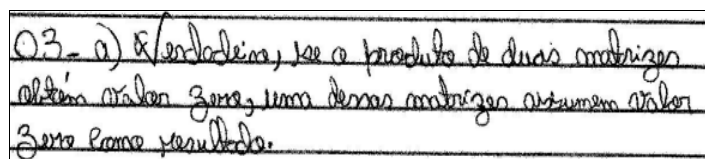 03- a) Verdadeira, se o produto de duas matrizes
obtém valor zero, uma dessas matrizes assumem valor
zero como resultado.